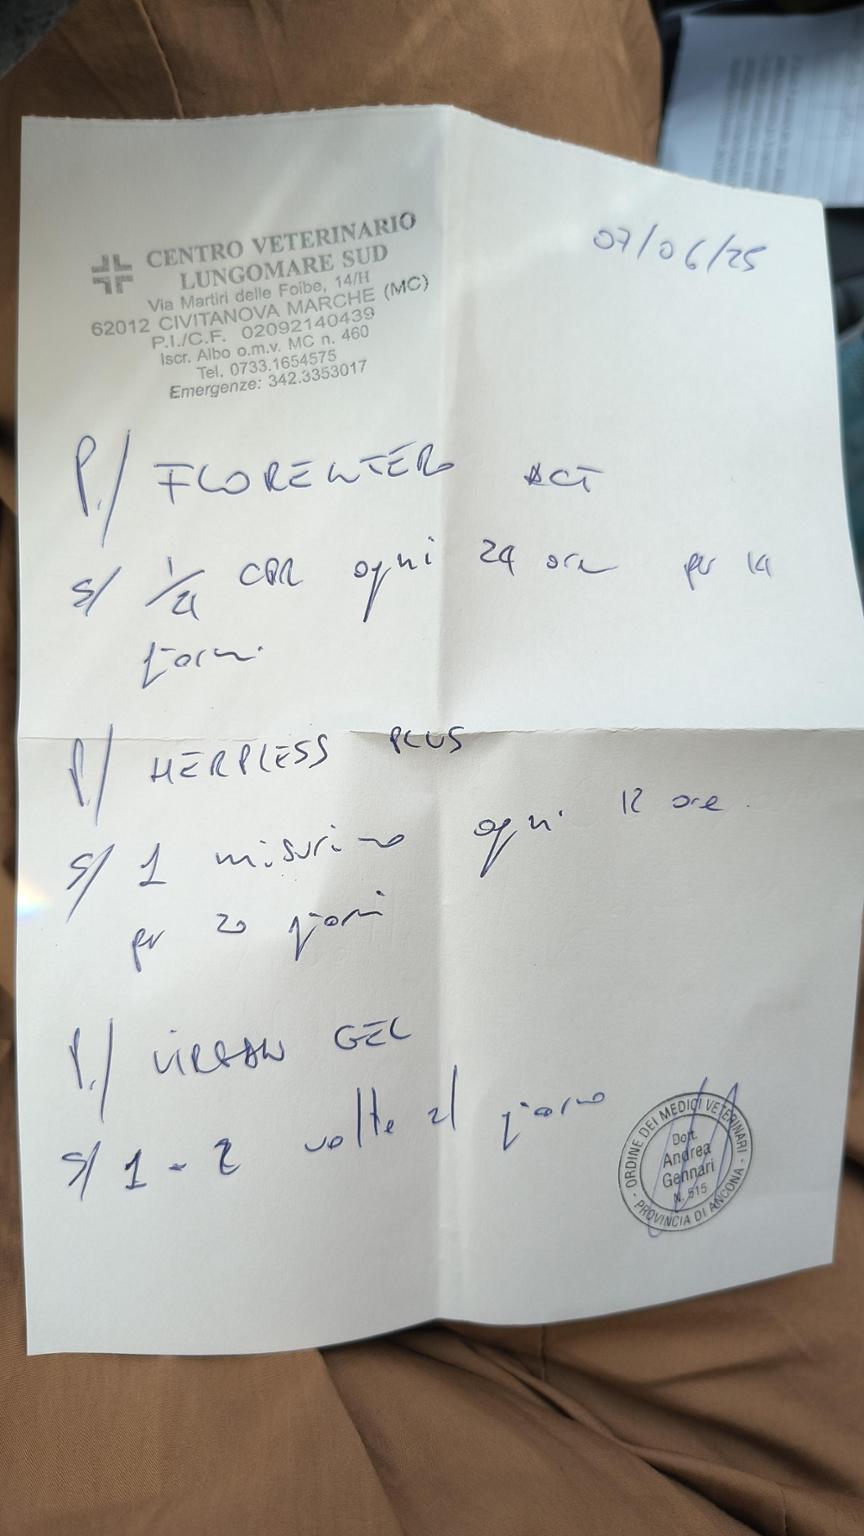 CENTRO VETERINARIO
LUNGOMARE SUD
Via Martiri delle Foibe, 14/H
62012 CIVITANOVA MARCHE (MC)
P.I./C.F. 02092140439
Iscr. Albo o.m.v. MC n. 460
Tel. 0733.1654575
Emergenze: 342.3353017
07/06/25
P./ FLORENTERO ACT
S/ CPR ogni 24 ore per 14
giorni
P./ HERPLESS PLUS
S/ 1 misurino ogni 12 ore.
per 20 giorni
P./ VIRBAN GEL
S/ 1 - 2 volte al giorno
ORDINE DEI MEDICI VETERINARI - PROVINCIA DI ANCONA -
Dott.
Andrea
Gennari
N. 515